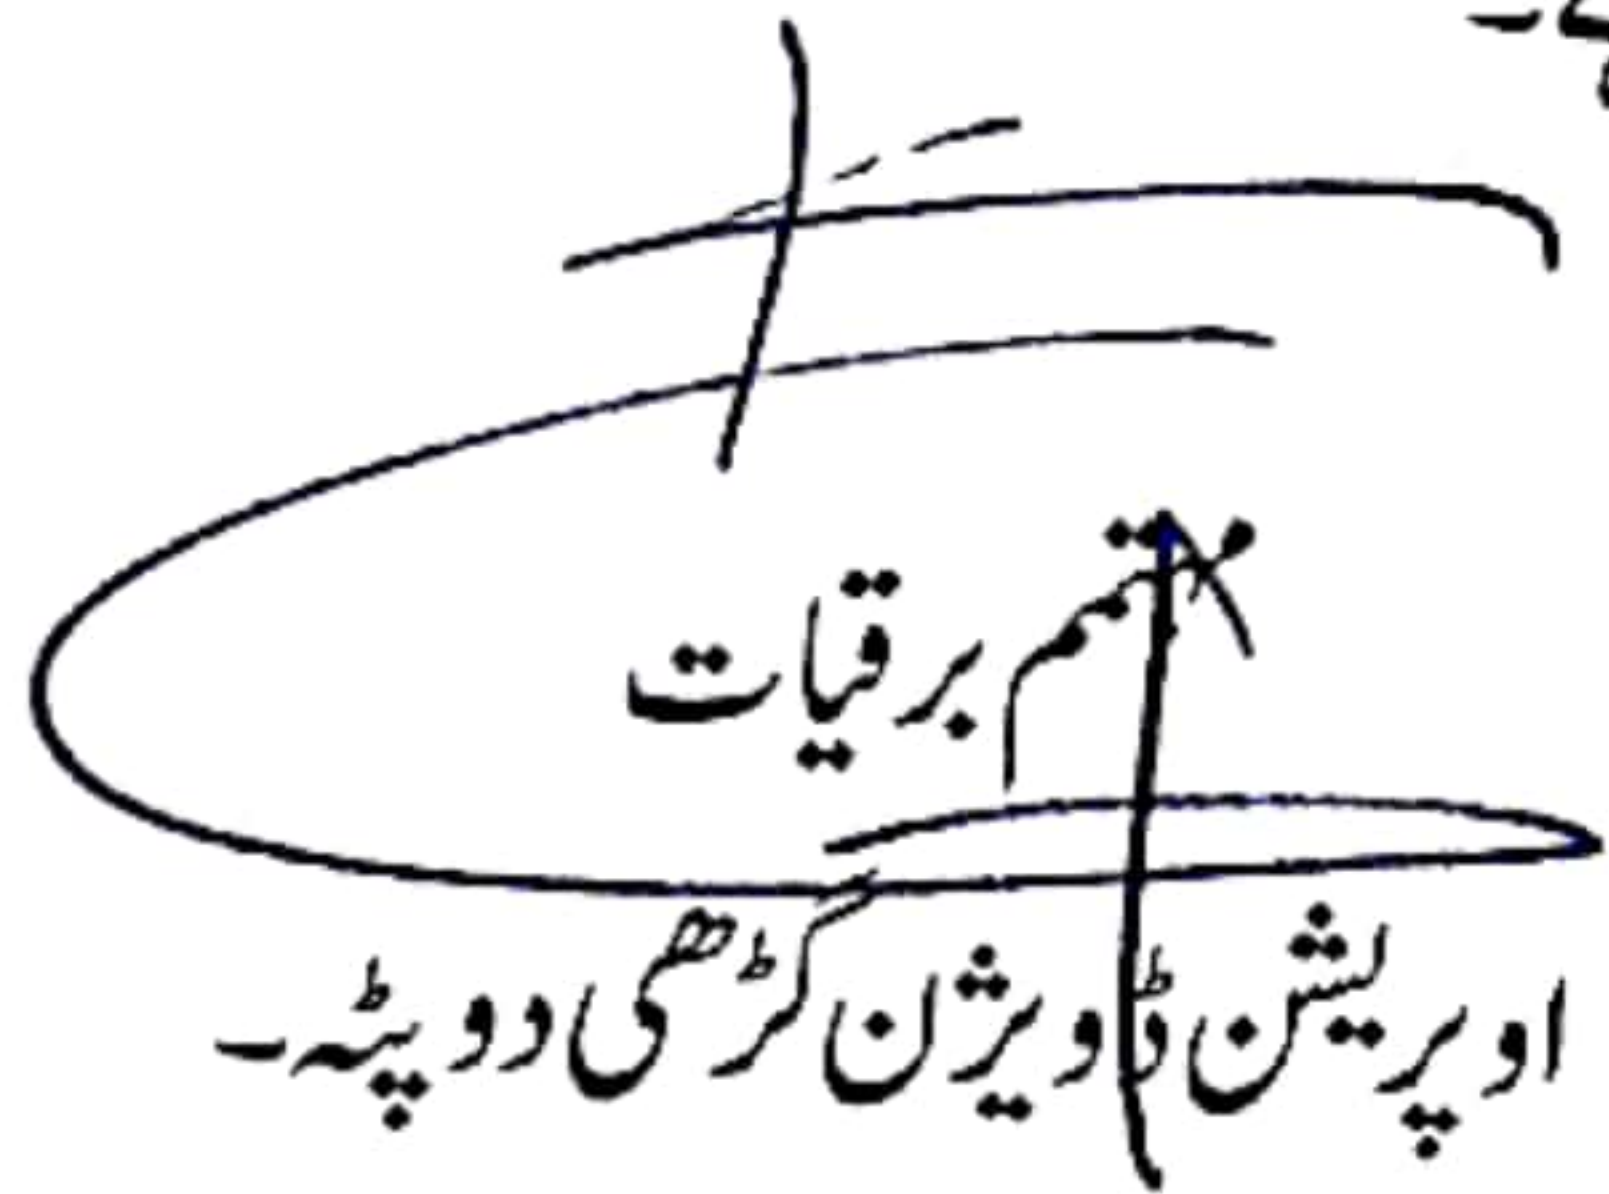 ہے۔
مہتمم برقیات
اوپریشن ڈاویژن گڑھی دوپٹہ۔